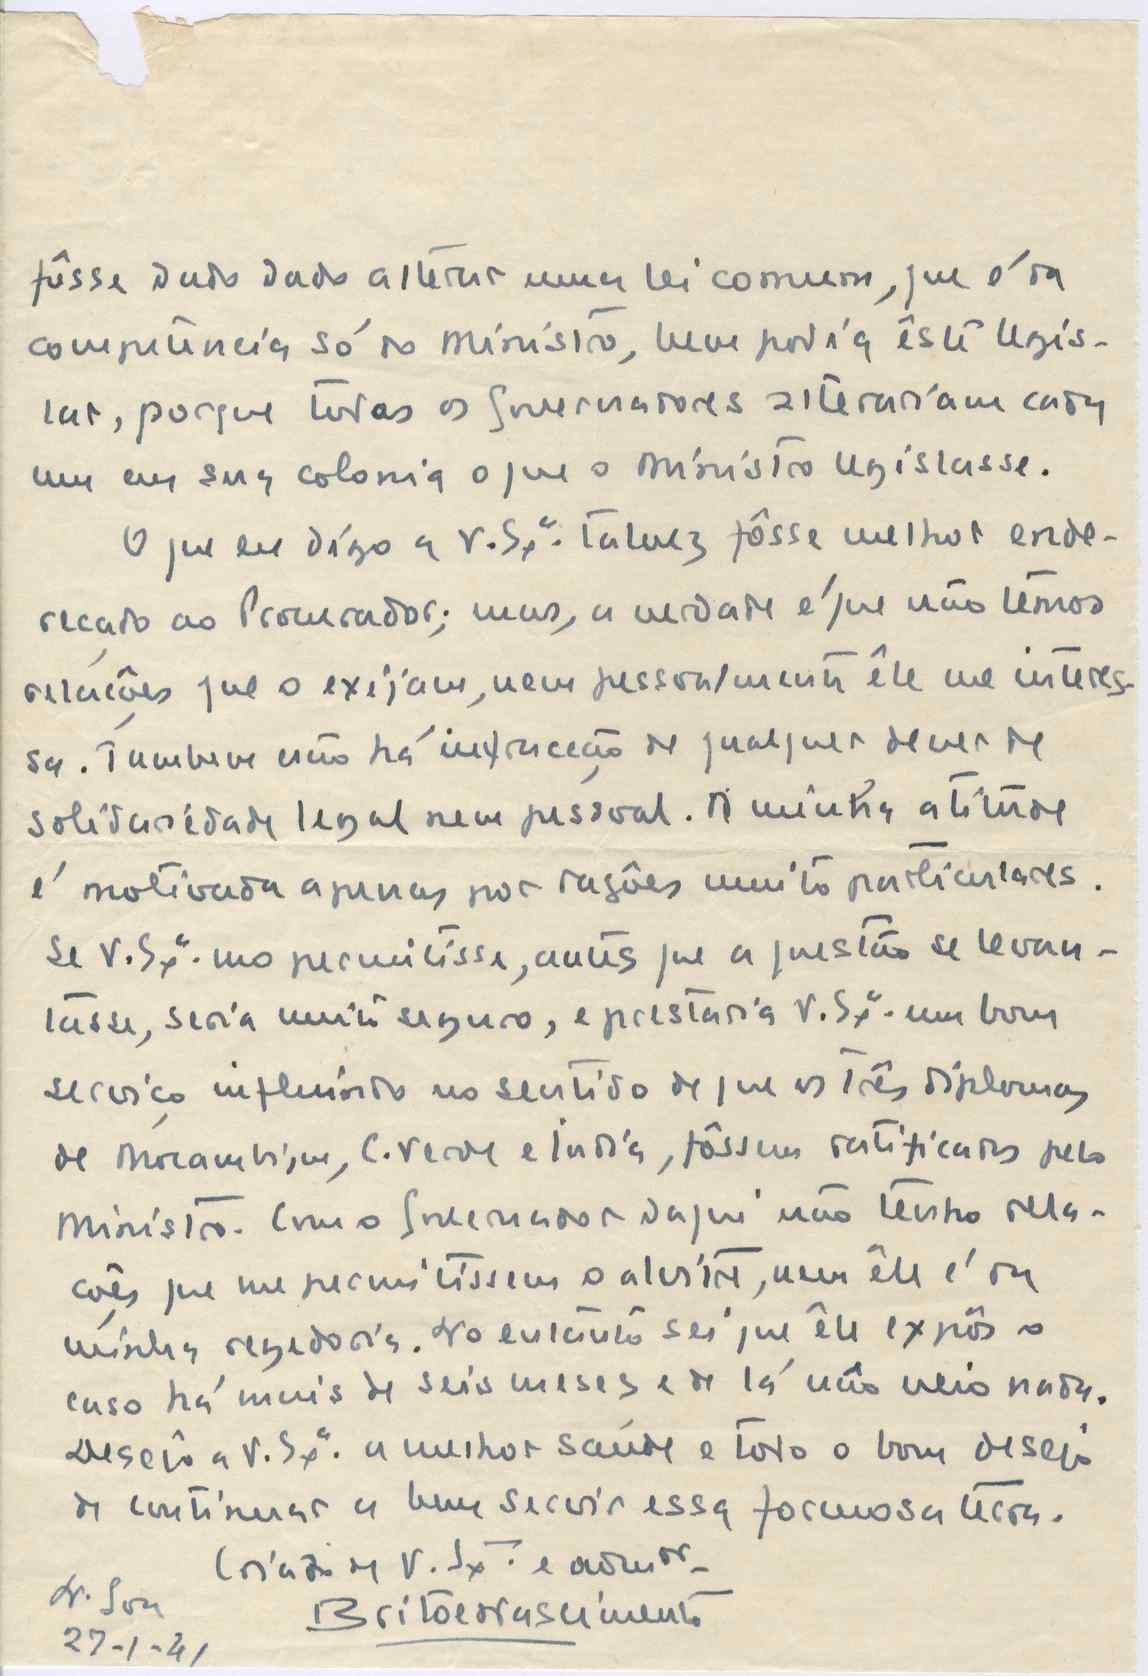 fôsse dado dado alterar uma lei comum, que é da
competência só do Ministro, bem podia êste legis-
lar, porque todos os Governadores alterariam cada
um em sua colonia o que o Ministro legislasse.
O que eu digo a V. Exª. talvez fôsse melhor ende-
reçado ao Procurador; mas, a verdade é que não têmos
relações que o exijam, nem pessoalmente êle me interes-
sa. Tambem não há infracção de qualquer dever de
solidariedade legal nem pessoal. A minha atitude
é motivada apenas por razões muito particulares.
Se V. Exª. mo permitisse, antes que a questão se levan-
tasse, seria muito seguro, e prestaria V. Exª. um bom
serviço influindo no sentido de que os três diplomas
de Moçambique, C. Verde e India, fôssem ratificados pelo
Ministro. Com o Governador daqui não tenho rela-
ções que me permitissem o alvitre, nem êle é da
minha regedoria. No entanto sei que êle expôs o
caso há mais de seis meses e de lá não veio nada.
Desejo a V. Exª. a melhor saúde e todo o bom desejo
de continuar a bem servir essa formosa terra.
Criado de V. Exª. e admor.
Brito e Nascimento
N. Goa
27-1-41